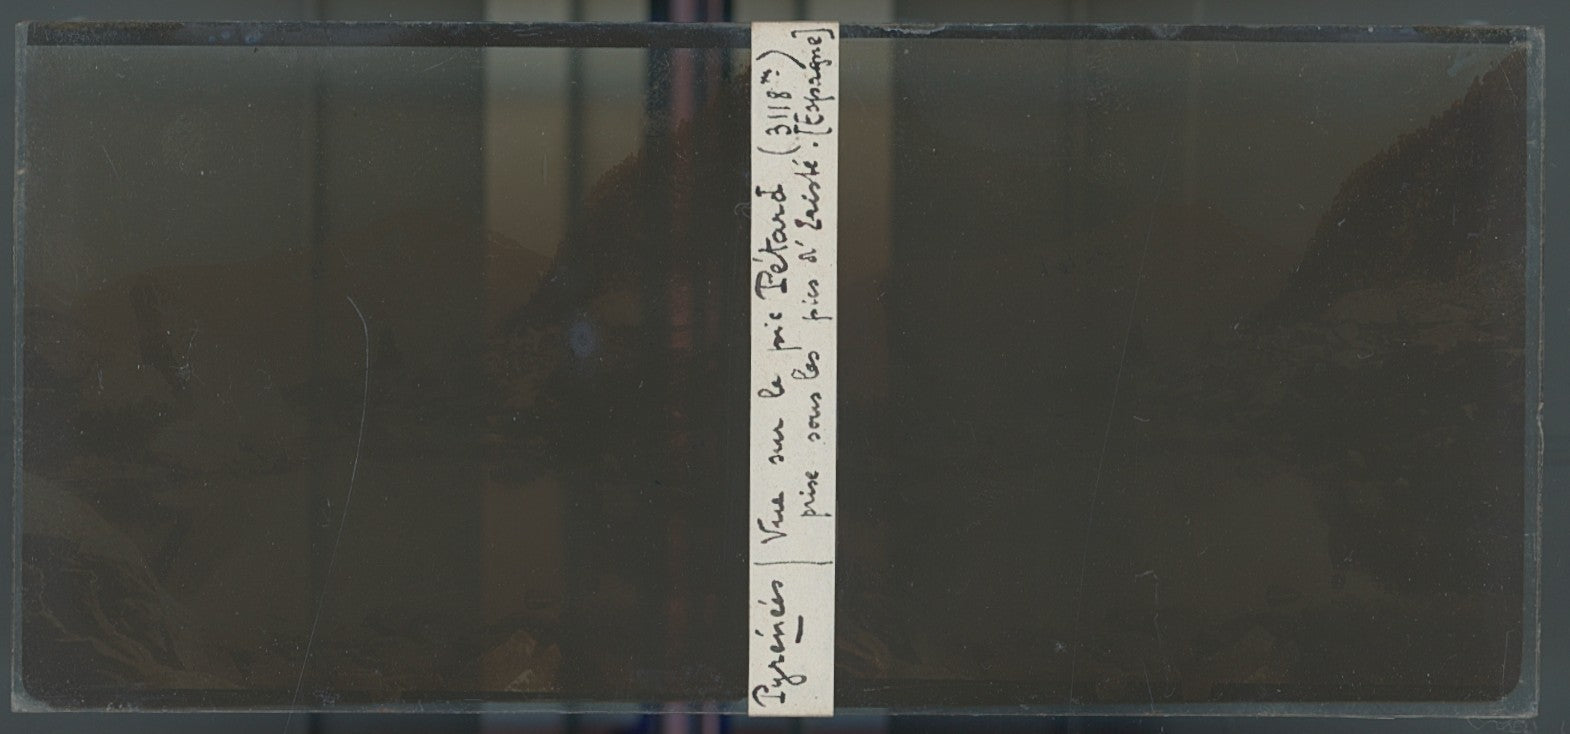 Pyrénées
Vue sur le pic Pétard (3118m)
prise sous les pics d'Eristé. [Espagne]